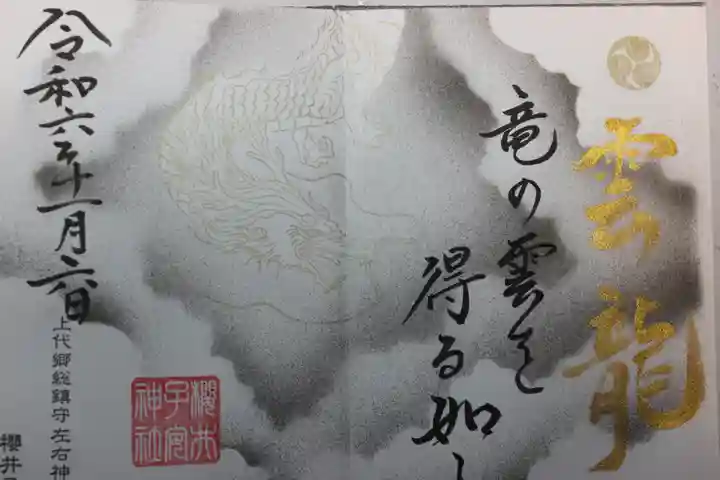 雲龍
竜の雲を
得る如し
櫻井
子宮
神社
令和六年十一月六日
上代郷総鎮守左右神
櫻井